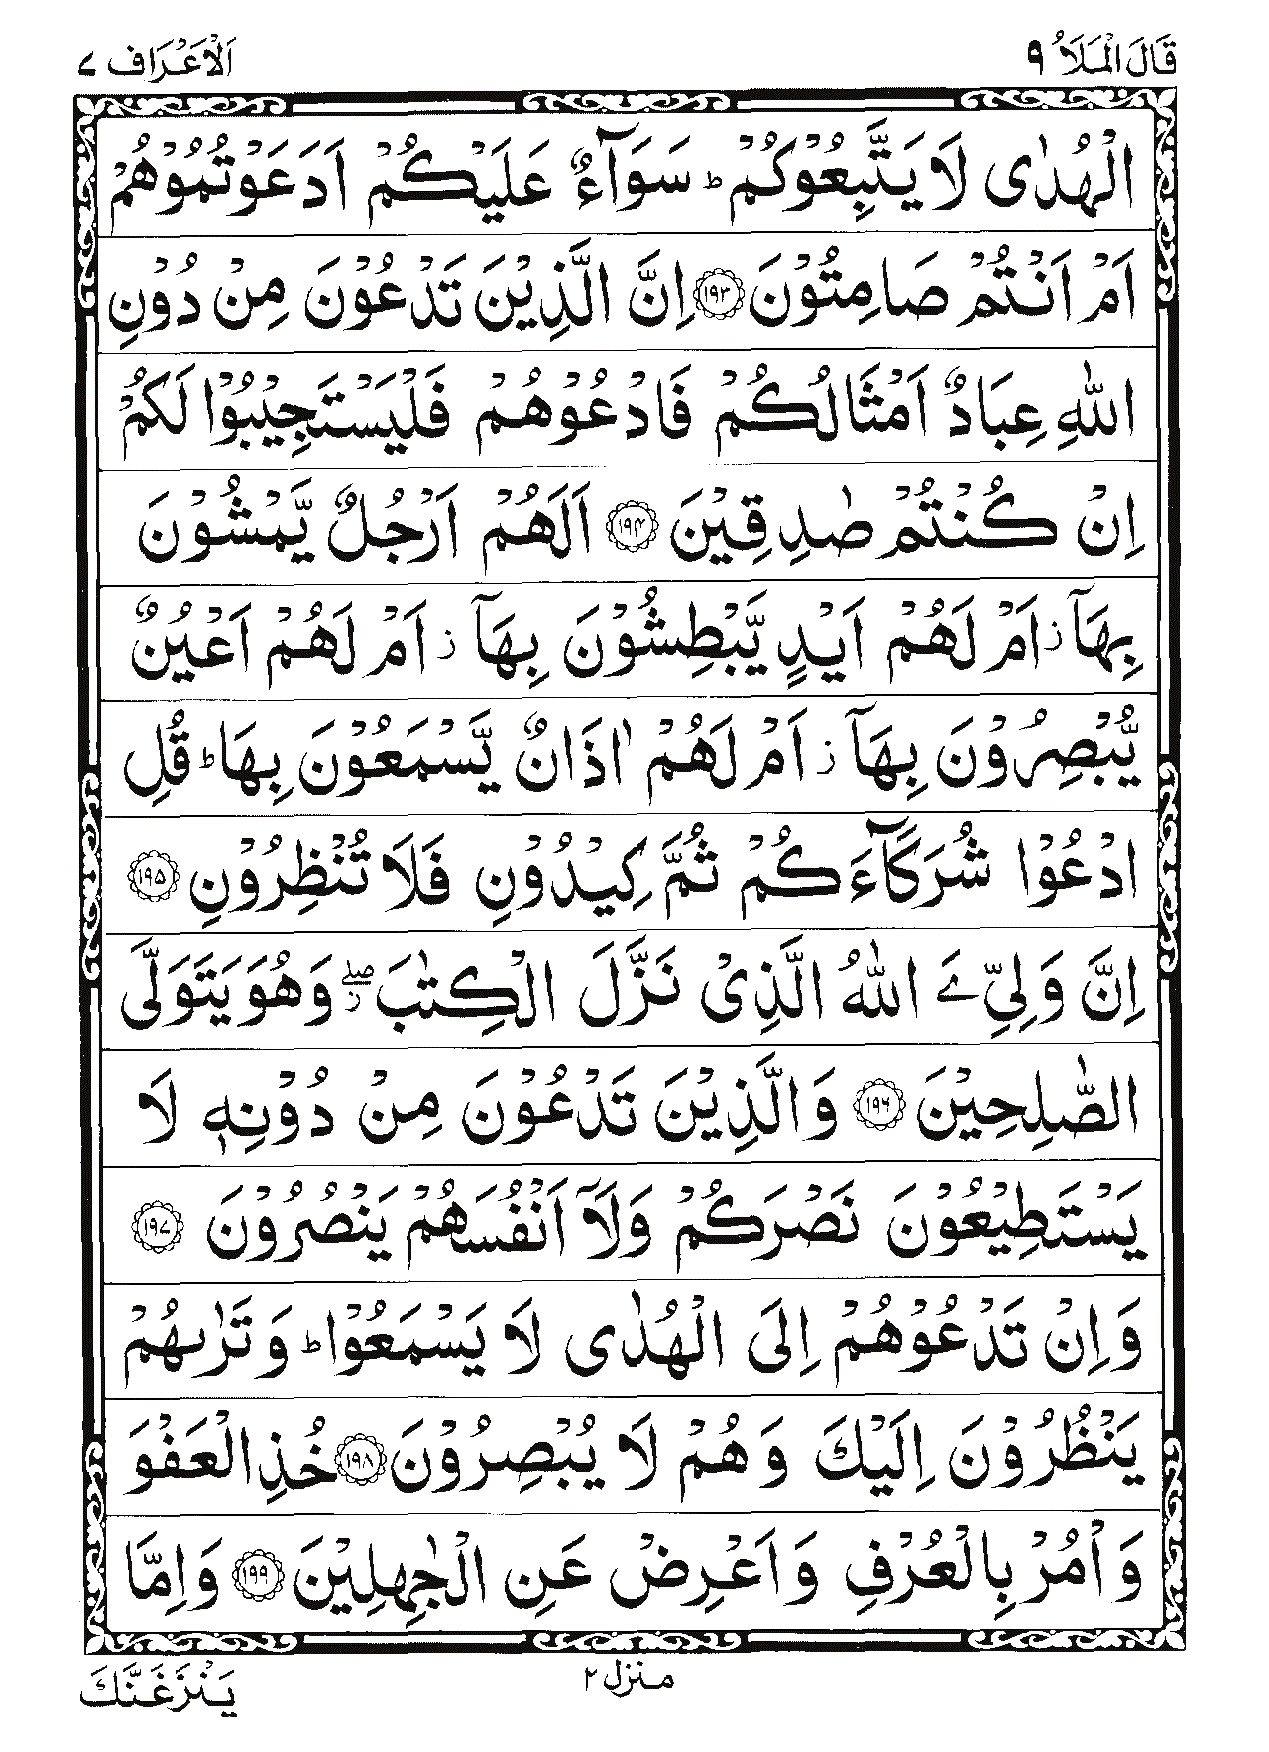 قَالَ الْمَلَاُ ٩
اَلْاَعْرَاف ٧
الْهُدٰى لَا يَتَّبِعُوْكُمْ ؕ سَوَآءٌ عَلَيْكُمْ اَدَعَوْتُمُوْهُمْ
اَمْ اَنْتُمْ صَامِتُوْنَ ﴿۱۹۳﴾ اِنَّ الَّذِيْنَ تَدْعُوْنَ مِنْ دُوْنِ
اللّٰهِ عِبَادٌ اَمْثَالُكُمْ فَادْعُوْهُمْ فَلْيَسْتَجِيْبُوْا لَكُمْ
اِنْ كُنْتُمْ صٰدِقِيْنَ ﴿۱۹۴﴾ اَلَهُمْ اَرْجُلٌ يَّمْشُوْنَ
بِهَاۤ ؗ اَمْ لَهُمْ اَيْدٍ يَّبْطِشُوْنَ بِهَاۤ ؗ اَمْ لَهُمْ اَعْيُنٌ
يُّبْصِرُوْنَ بِهَاۤ ؗ اَمْ لَهُمْ اٰذَانٌ يَّسْمَعُوْنَ بِهَا ؕ قُلِ
ادْعُوْا شُرَكَآءَكُمْ ثُمَّ كِيْدُوْنِ فَلَا تُنْظِرُوْنِ ﴿۱۹۵﴾
اِنَّ وَلِيِّ ےَ اللّٰهُ الَّذِيْ نَزَّلَ الْكِتٰبَ ۖؗ وَهُوَ يَتَوَلَّى
الصّٰلِحِيْنَ ﴿۱۹۶﴾ وَالَّذِيْنَ تَدْعُوْنَ مِنْ دُوْنِهٖ لَا
يَسْتَطِيْعُوْنَ نَصْرَكُمْ وَلَاۤ اَنْفُسَهُمْ يَنْصُرُوْنَ ﴿۱۹۷﴾
وَاِنْ تَدْعُوْهُمْ اِلَى الْهُدٰى لَا يَسْمَعُوْا ؕ وَتَرٰىهُمْ
يَنْظُرُوْنَ اِلَيْكَ وَهُمْ لَا يُبْصِرُوْنَ ﴿۱۹۸﴾ خُذِ الْعَفْوَ
وَاْمُرْ بِالْعُرْفِ وَاَعْرِضْ عَنِ الْجٰهِلِيْنَ ﴿۱۹۹﴾ وَاِمَّا
منزل ٢
يَنْزَغَنَّكَ